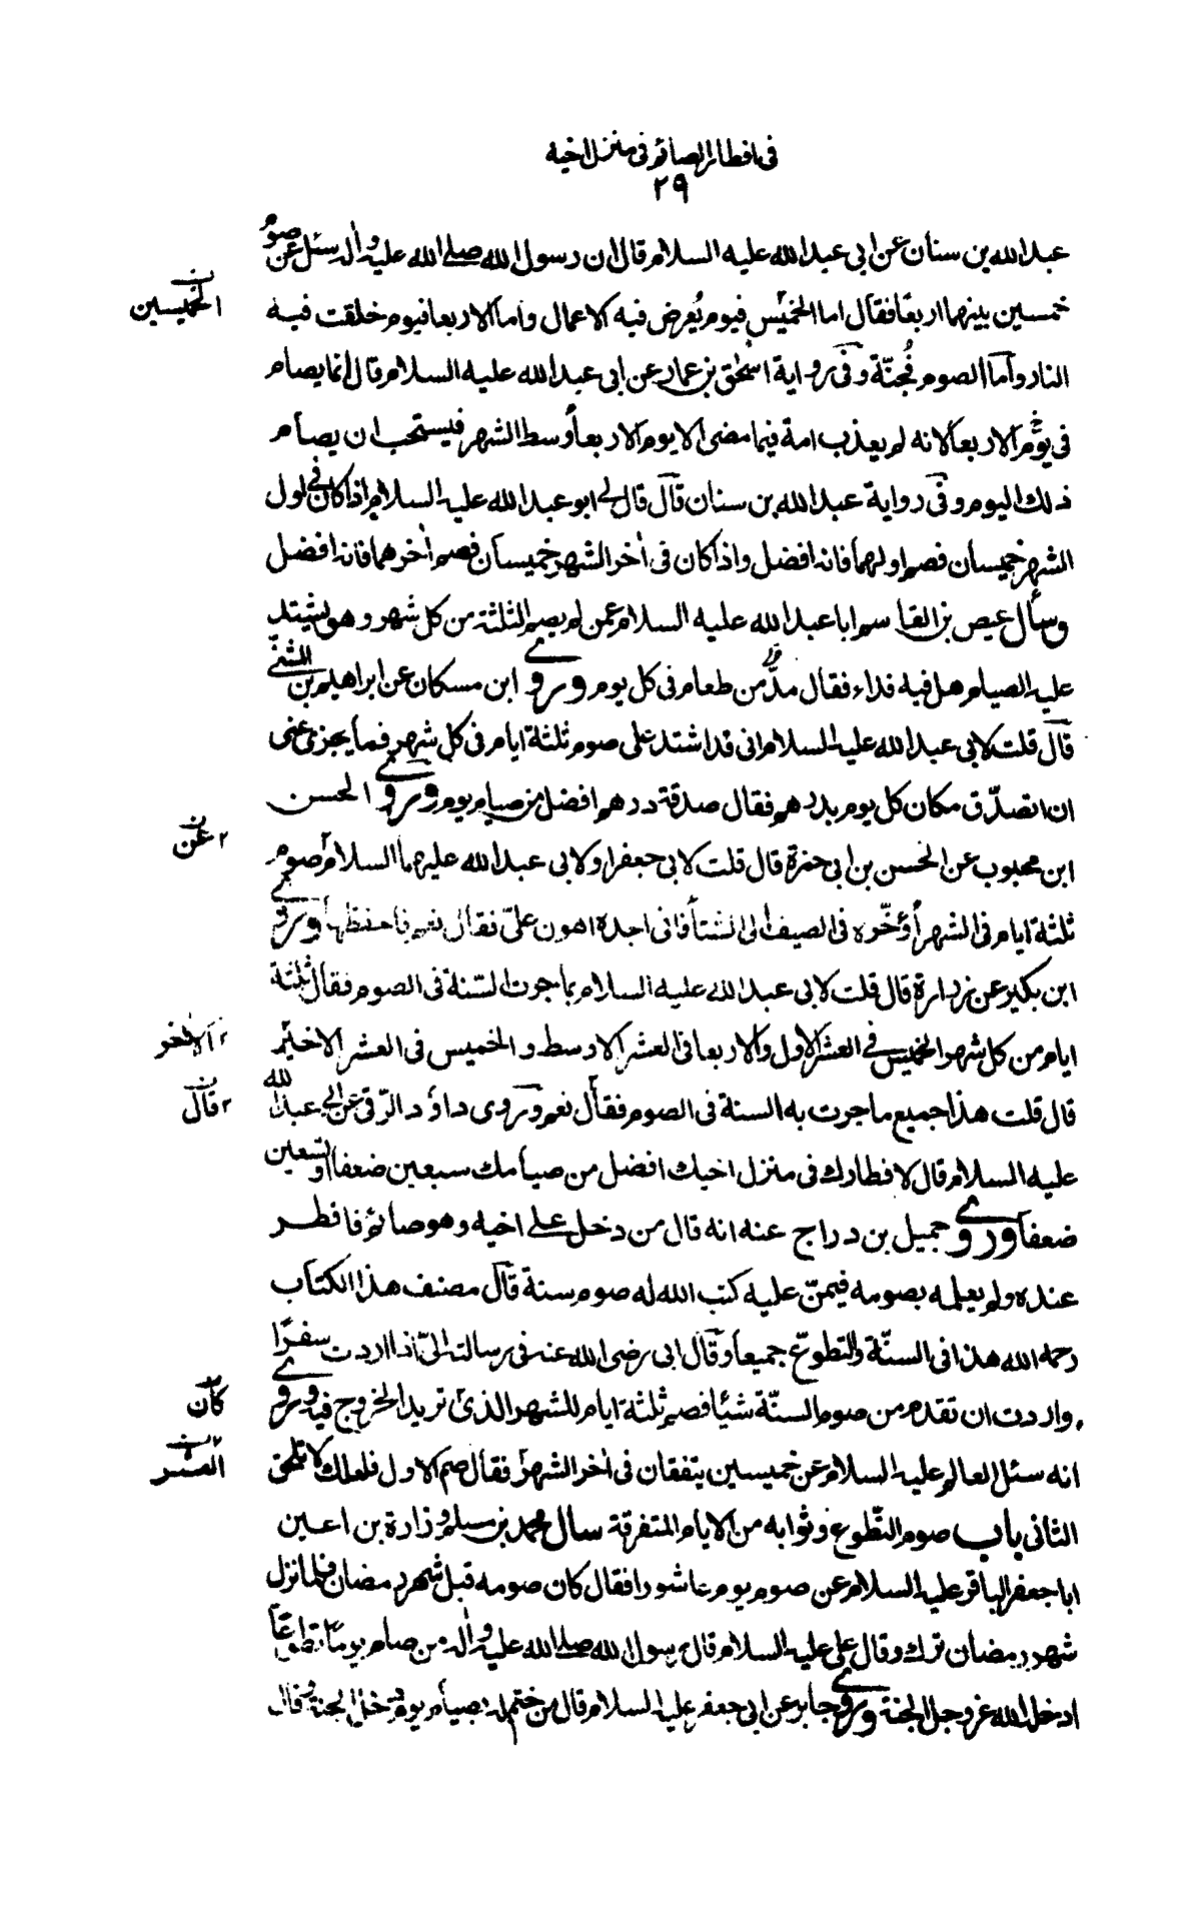 فى افطار الصائم فى منزل اخيه
٢٩
عبد الله بن سنان عن ابى عبد الله عليه السلام قال ان رسول الله صلى الله عليه وآله سئل عن صوم
خمسين بينهما اربعا فقال اما الخميس فيوم يُعرض فيه الاعمال واما الاربعا فيوم خلقت فيه
الخميسين
النار واما الصوم فجُنّة وفى رواية اسحٰق بن عمار عن ابى عبد الله عليه السلام قال انما يصام
فى يوم الاربعا لانه لم يعذب امة فيما مضى الا يوم الاربعا وسط الشهر فيستحب ان يصام
ذلك اليوم وفى رواية عبد الله بن سنان قال قال لى ابو عبد الله عليه السلام اذا كان فى اول
الشهر خميسان فصم اولهما فانه افضل واذا كان فى اٰخر الشهر خميسان فصم اٰخرهما فانه افضل
وسأل عيص بن القاسم ابا عبد الله عليه السلام عمن لم يصم الثلثة من كل شهر وهو يشتد
عليه الصيام هل فيه فداء فقال مدٌّ من طعام فى كل يوم وروى ابن مسكان عن ابراهيم بن المثنى
قال قلت لابى عبد الله عليه السلام انى قد اشتد على صوم ثلثة ايام فى كل شهر فما يجزى عنى
ان اتصدّق مكان كل يوم بدرهم فقال صدقة درهم افضل من صيام يوم وروى الحسن
ابن محبوب عن الحسن بن ابى حمزة قال قلت لابى جعفر او لابى عبد الله عليهما السلام صوم
٢ عن
ثلثة ايام فى الشهر أؤخّره فى الصيف الى الشتأ فانى اجده اهون علىّ فقال نعم فاحفظها وروى
ابن بكير عن زرارة قال قلت لابى عبد الله عليه السلام بما جرت السنة فى الصوم فقال ثلثة
ايام من كل شهر الخميس فى العشر الاول والاربعا فى العشر الاوسط والخميس فى العشر الاخير
٢ الاٰخر
قال قلت هذا جميع ما جرت به السنة فى الصوم فقال نعم وروى داؤد الرّقى عن ابى عبد الله
٢ قال
عليه السلام قال لافطارك فى منزل اخيك افضل من صيامك سبعين ضعفا او تسعين
ضعفا وروى جميل بن دراج عنه انه قال من دخل على اخيه وهو صائم فافطر
عنده ولم يعلمه بصومه فيمنّ عليه كتب الله له صوم سنة قال مصنف هذا الكتاب
رحمه الله هذا فى السنّة والتطوّع جميعا وقال ابى رضى الله عنه فى رسالته الىّ اذا اردت سفرًا
واردت ان تقدم من صوم السنّة شيئا فصم ثلثة ايام للشهر الذى تريد الخروج فيه وروى
كان
انه سئل العالم عليه السلام عن خميسين يتفقان فى اٰخر الشهر فقال صم الاول فلعلك لا تلحق
الثانى باب صوم التطوع وثوابه من الايام المتفرقة سال محمد بن مسلم وزرارة بن اعين
ابا جعفر الباقر عليه السلام عن صوم يوم عاشورا فقال كان صومه قبل شهر رمضان فلما نزل
شهر رمضان ترك وقال على عليه السلام قال رسول الله صلى الله عليه وآله من صام يومًا تطوّعًا
ادخله الله عز وجل الجنة وروى جابر عن ابى جعفر عليه السلام قال من ختم له بصيام يوم دخل الجنة وقال